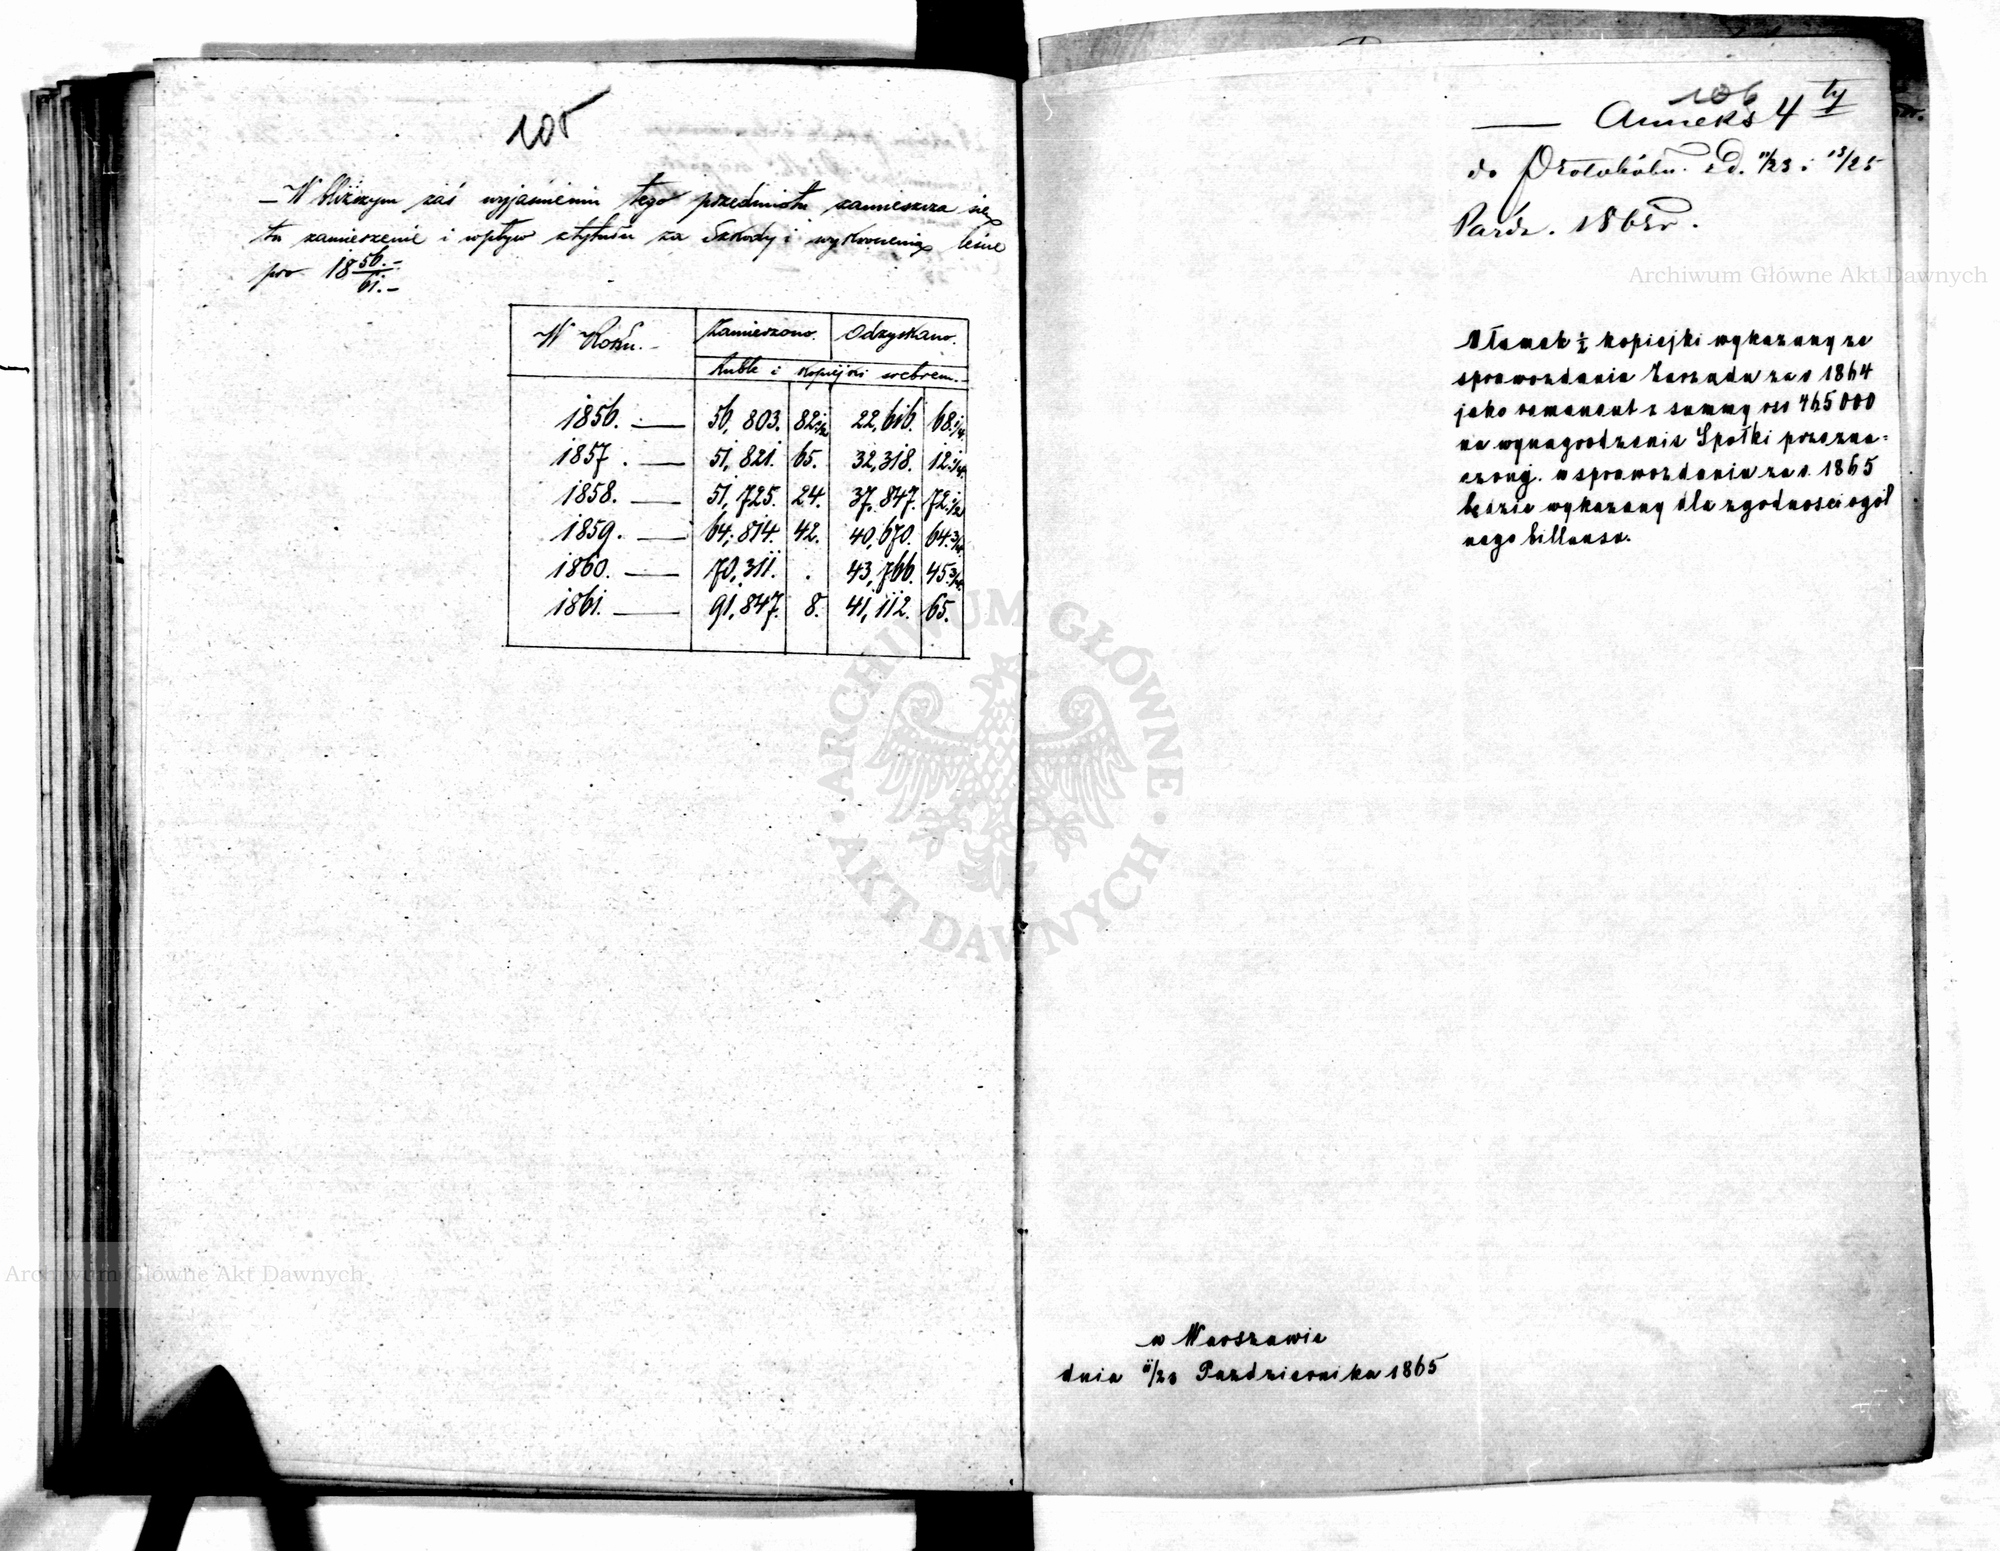 105
— W bliższym zaś wyjaśnieniu tego przedmiotu zamieszcza się
tu zamierzenie i wpływ z tytułu za Szkody i wykroczenia leśne
pro 18 56.-/61.-
W Roku.- Zamierzono. Odzyskano.
Ruble i kopiejki srebrem.-
1856. — 56,803. 82 1/2 22,616. 68 1/4
1857. — 51,821. 65. 32,318. 12 1/4
1858. — 51,725. 24. 37,847. 72 1/2
1859. — 64,814. 42. 40,670. 64 3/4
1860. — 70,311. . 43,766. 45 3/4
1861. — 91,847. 8. 41,112. 65.
106
— Anneks 4ty
do Protokółu. z d. 11/23 i 13/25
Paźdz. 1865 r.
Ułamek ½ kopiejki wykazany ze
sprawozdania Zarządu za r. 1864
jako remanent z summy rsr 465000
na wynagrodzenie Spółki przezna=
czonej. w sprawozdaniu za r. 1865
będzie wykazany dla zgodności ogól
nego billansu.
w Warszawie
dnia 11/23 Października 1865
Archiwum Główne Akt Dawnych
Archiwum Główne Akt Dawnych
ARCHIWUM GŁÓWNE
AKT DAWNYCH